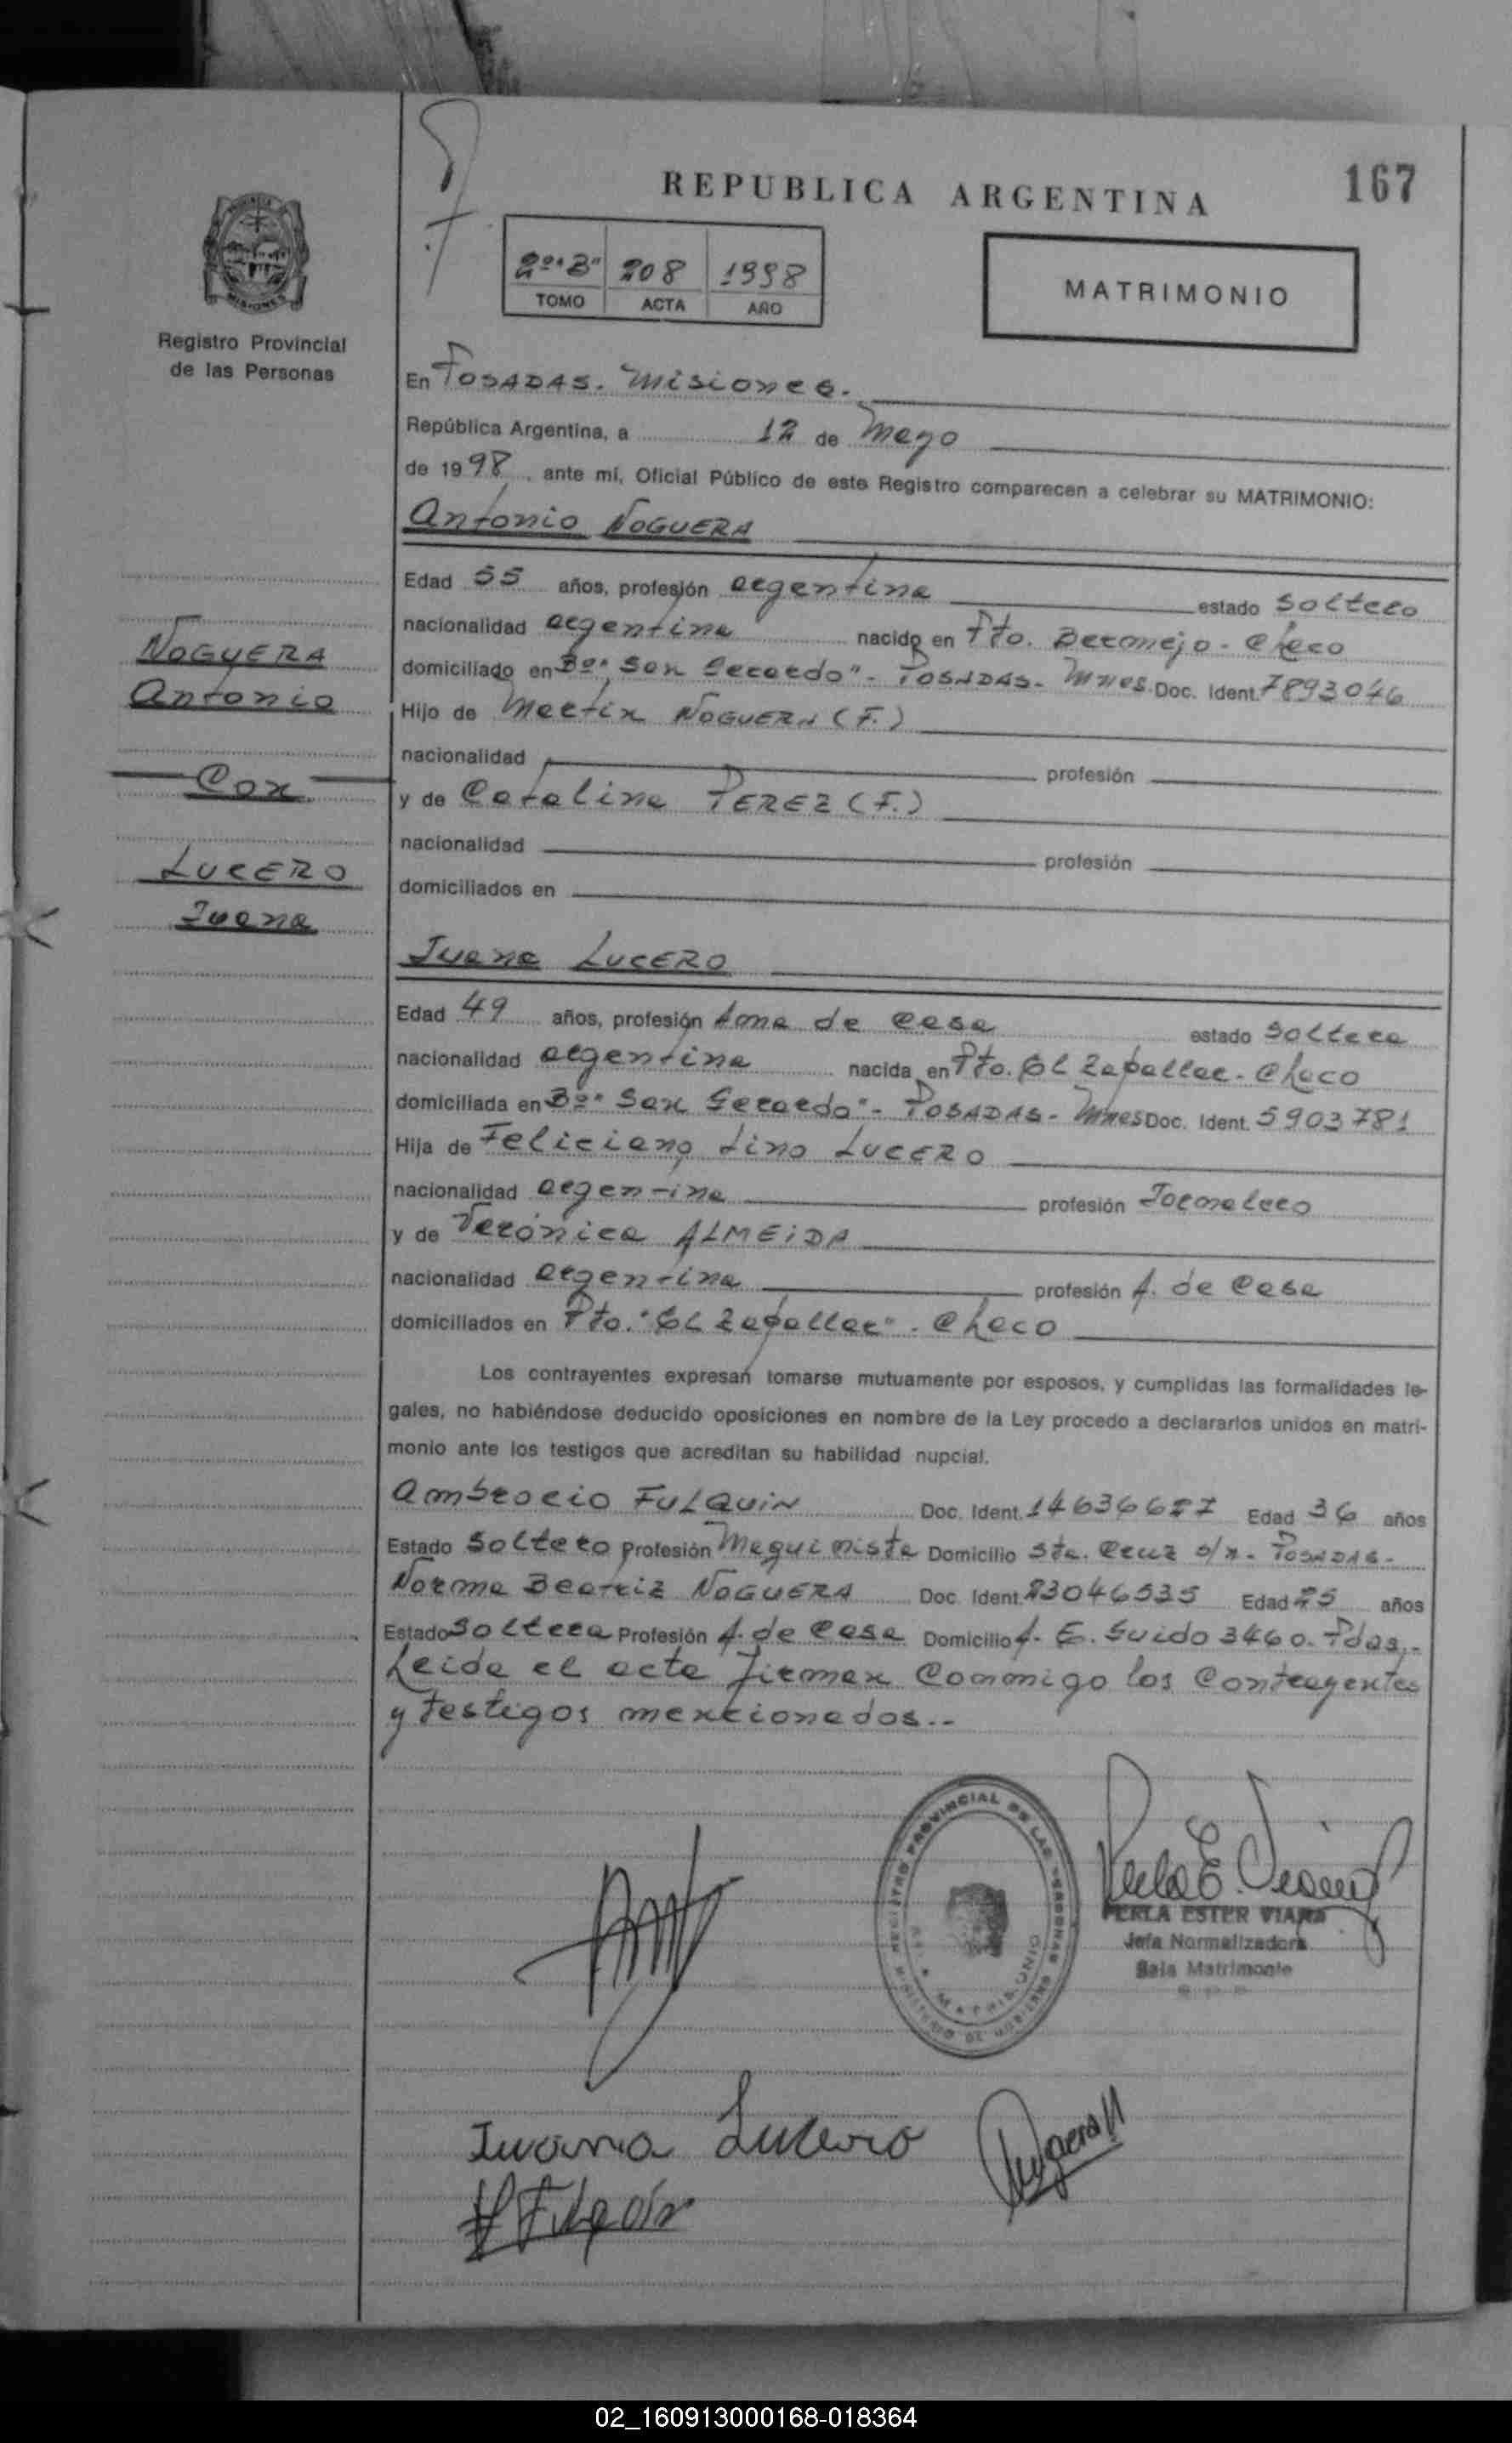 167
REPUBLICA ARGENTINA
2º "B" 208 1998
TOMO ACTA AÑO
MATRIMONIO
Registro Provincial
de las Personas
En POSADAS. Misiones.
República Argentina, a 12 de Mayo
de 1998, ante mí, Oficial Público de este Registro comparecen a celebrar su MATRIMONIO:
Antonio NOGUERA
Edad 55 años, profesión argentina estado soltero
nacionalidad argentina nacido en Pto. Bermejo - Chaco
domiciliado en Bº "San Gerardo" - POSADAS - Mnes. Doc. Ident. 7893046
Hijo de Martin NOGUERA (F.)
nacionalidad profesión
y de Catalina PEREZ (F.)
nacionalidad profesión
domiciliados en
NOGUERA
Antonio
Con
LUCERO
Juana
Juana LUCERO
Edad 49 años, profesión Ama de Casa estado soltera
nacionalidad argentina nacida en Pto. El Zapallar - Chaco
domiciliada en Bº "San Gerardo" - POSADAS - Mnes Doc. Ident. 5903781
Hija de Feliciano Lino LUCERO
nacionalidad argentina profesión Jornalero
y de Verónica ALMEIDA
nacionalidad argentina profesión A. de Casa
domiciliados en Pto. "El Zapallar" - Chaco
Los contrayentes expresan tomarse mutuamente por esposos, y cumplidas las formalidades le-
gales, no habiéndose deducido oposiciones en nombre de la Ley procedo a declararlos unidos en matri-
monio ante los testigos que acreditan su habilidad nupcial.
Ambrocio FULQUIN Doc. Ident. Edad 36 años
Estado Soltero Profesión Maquinista Domicilio Sta. Cruz s/n - POSADAS -
Norma Beatriz NOGUERA Doc. Ident. 23046535 Edad 25 años
Estado Soltera Profesión A. de Casa Domicilio A. E. Guido 3460. Pdas.-
Leída el acta firman Conmigo los Contrayentes
y testigos mencionados.--
REGISTRO PROVINCIAL DE LAS PERSONAS
MINISTERIO DE GOBIERNO
MATRIMONIO
Perla E. Viana
PERLA ESTER VIANA
Jefa Normalizadora
Sala Matrimonio
Juana Lucero
Noguera
02_160913000168-018364